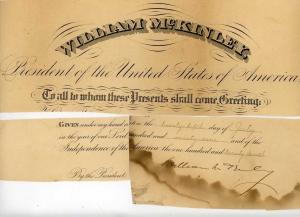 WILLIAM McKINLEY,
President of the United States of America
To all to whom these Presents shall come, Greeting:
GIVEN under my hand at the day of
in the year of our Lord hundred and and of the
Independence of the America the one hundred and
By the President
William McKinley